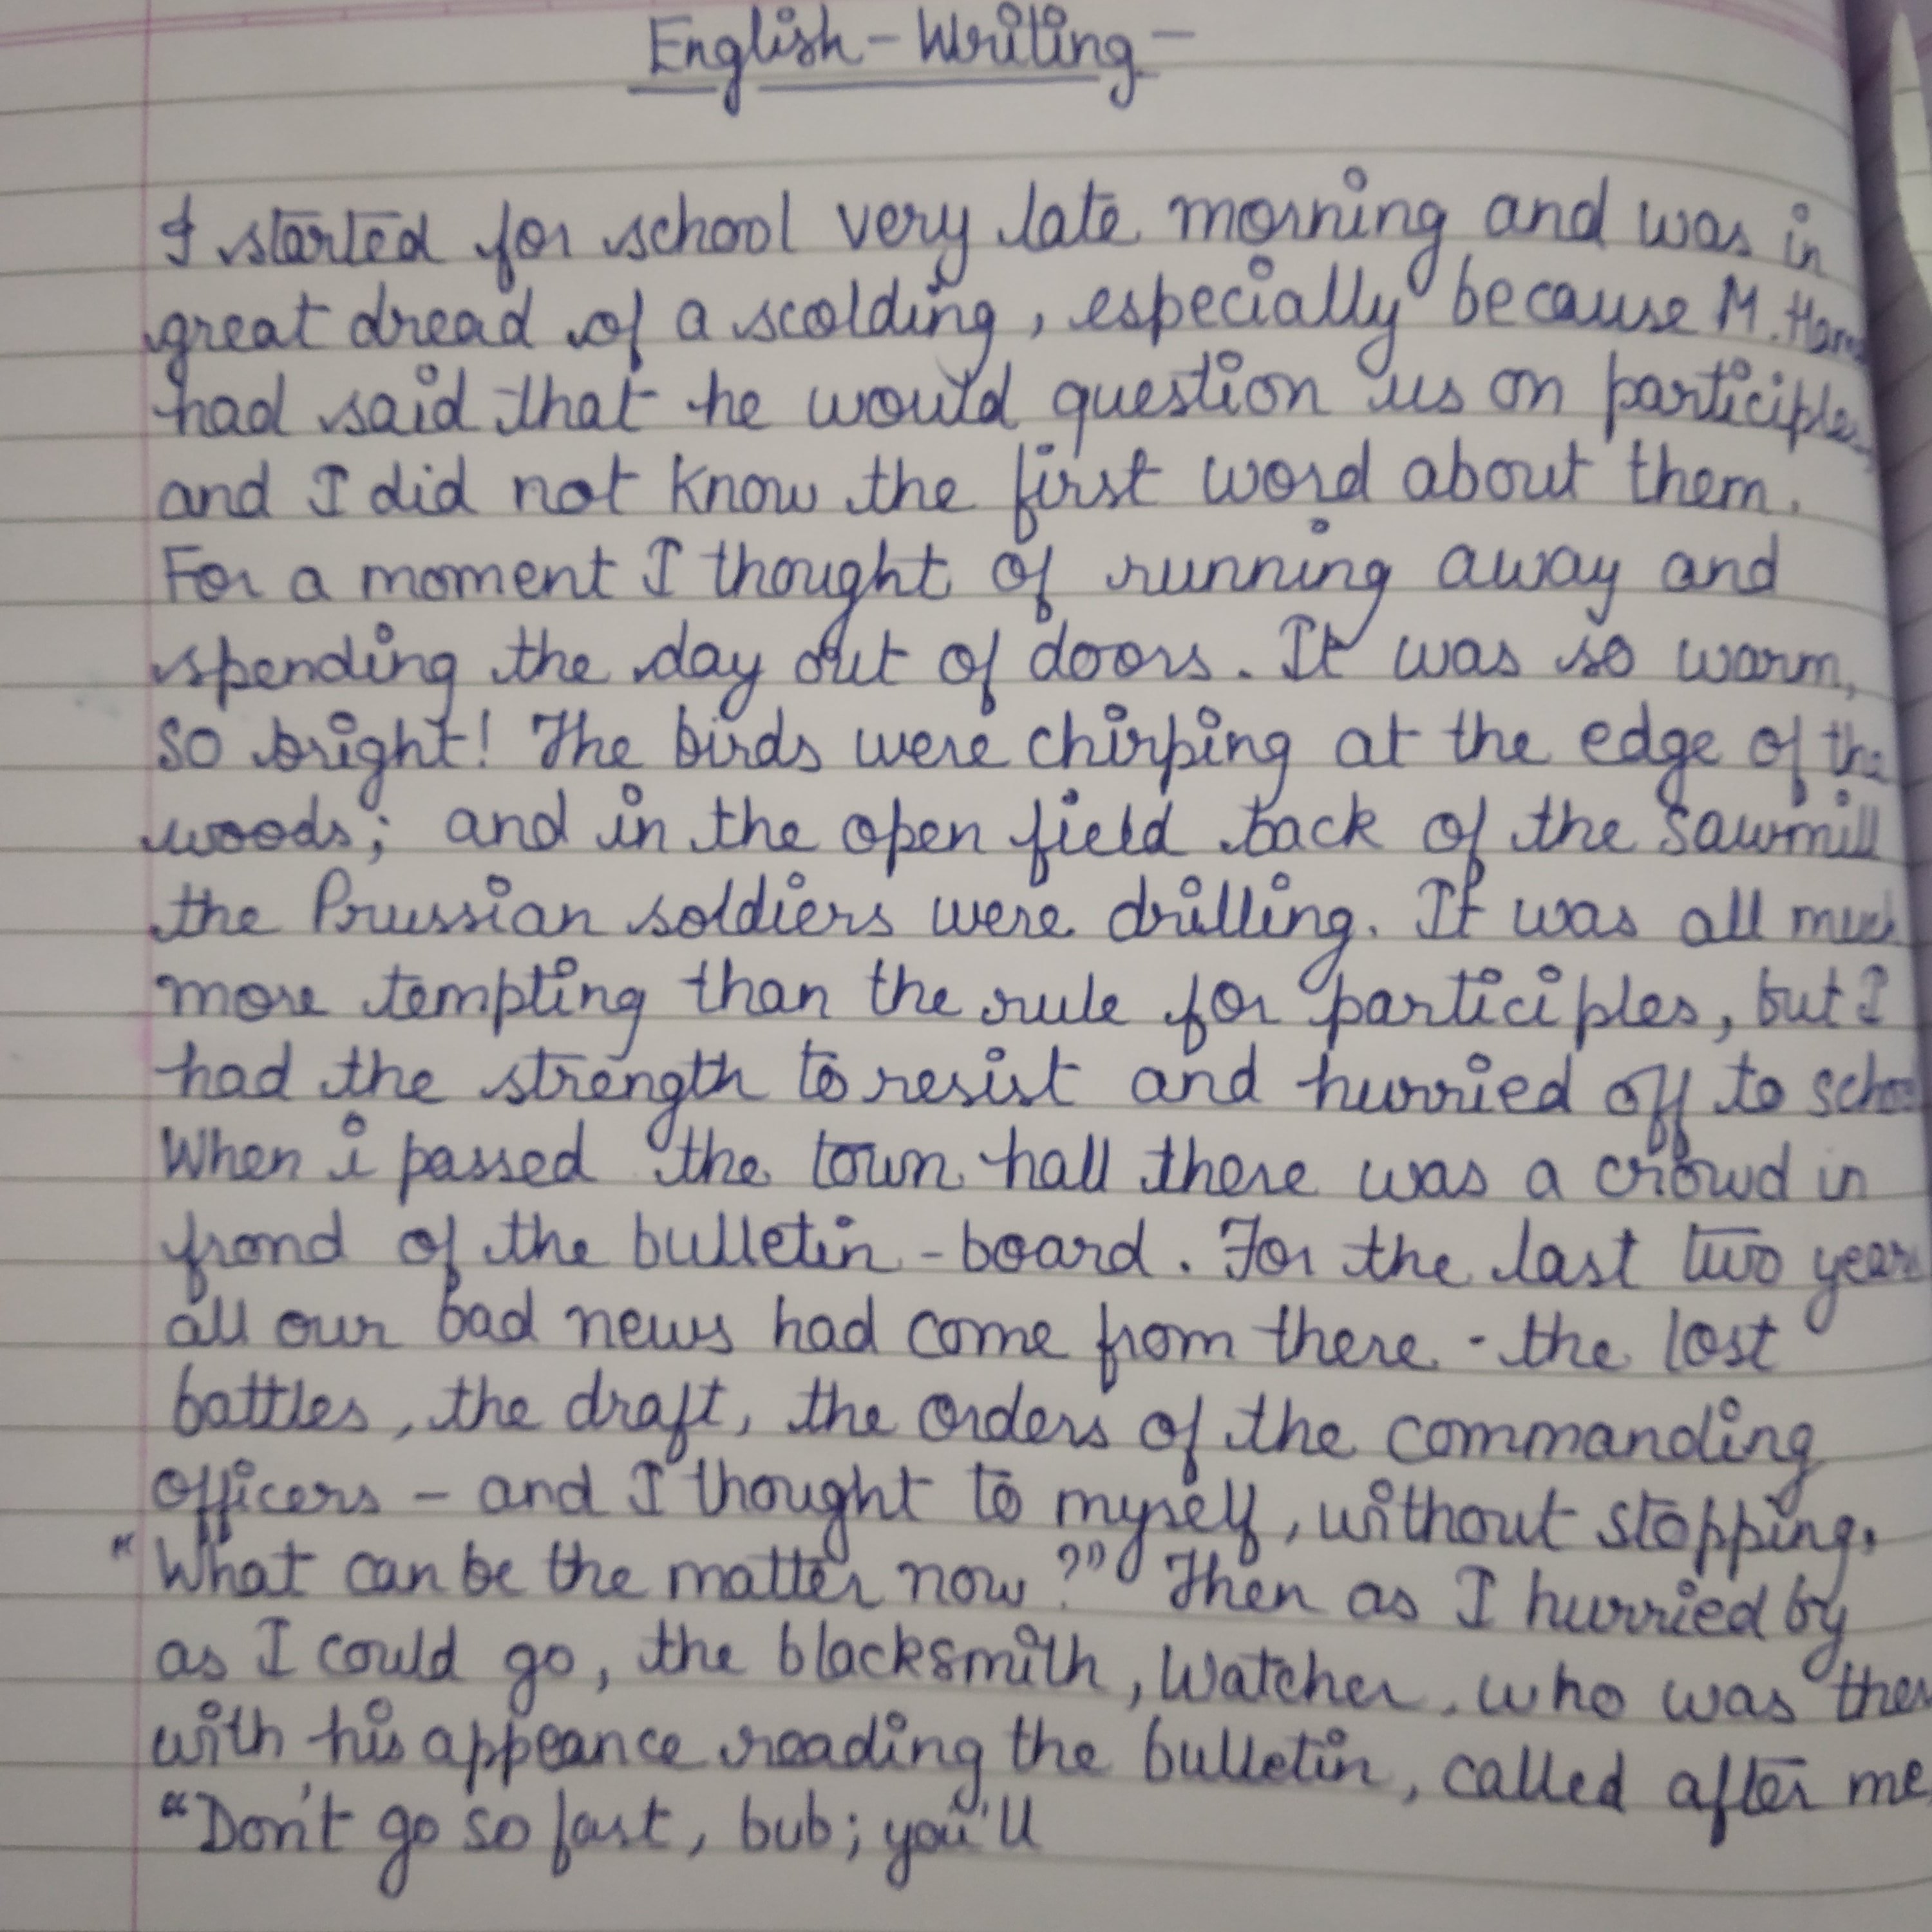 English - Writing -
I started for school very late morning and was in
great dread of a scolding, especially because M.
had said that he would question us on participles
and I did not know the first word about them.
For a moment I thought of running away and
spending the day out of doors. It was so warm,
so bright! The birds were chirping at the edge of the
woods; and in the open field back of the sawmill
the Prussian soldiers were drilling. It was all much
more tempting than the rule for participles, but I
had the strength to resist and hurried off to school
When i passed the town hall there was a crowd in
frond of the bulletin - board. For the last two years
all our bad news had come from there - the lost
battles, the draft, the orders of the commanding
officers - and I thought to myself, without stopping,
"What can be the matter now ?" Then as I hurried by
as I could go, the blacksmith, Watcher, who was there
with his appeance reading the bulletin, called after me,
"Don't go so fast, bub; you'll